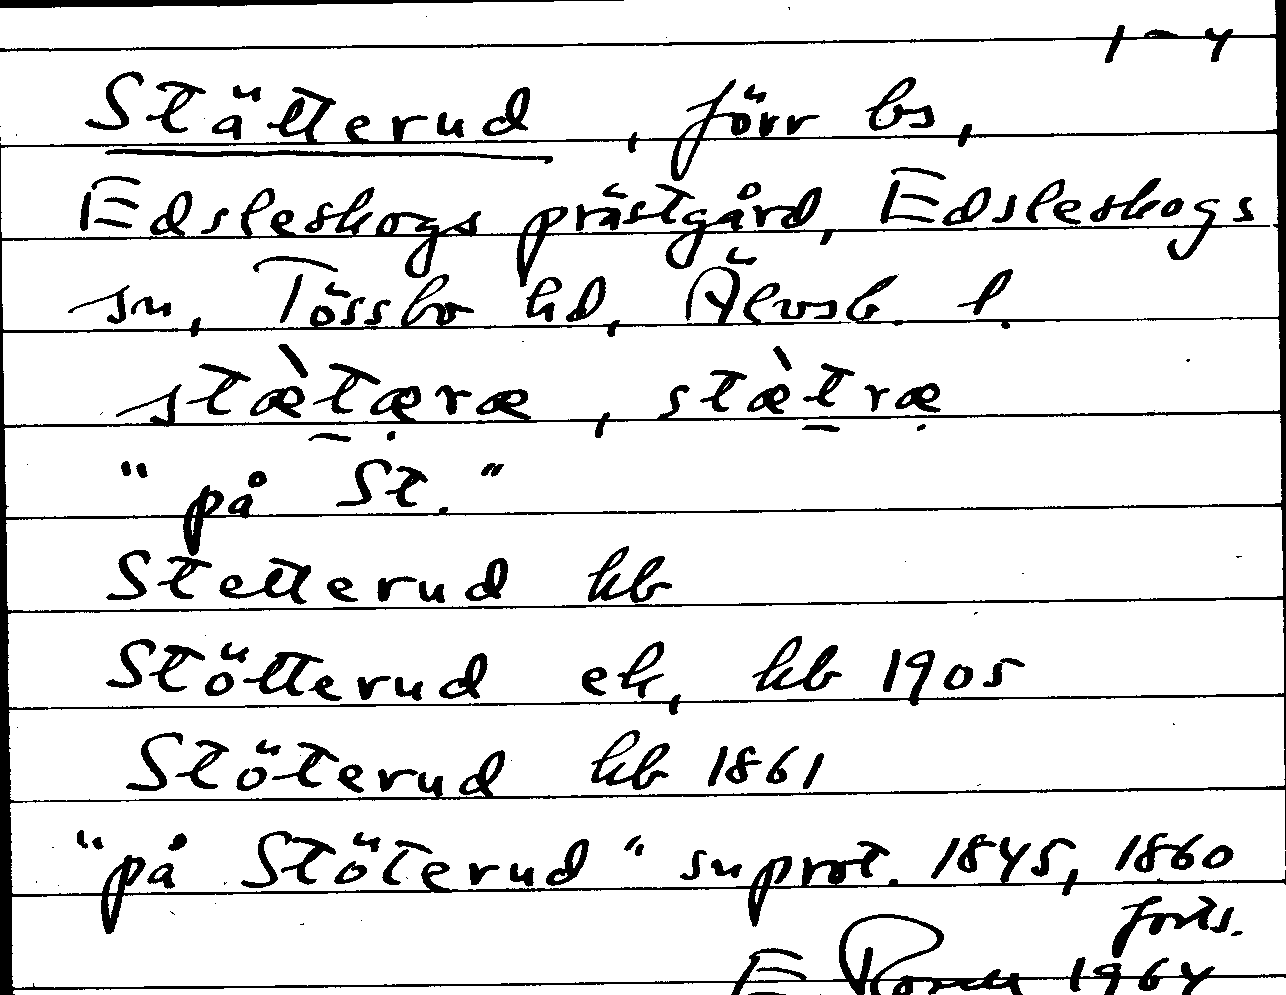 1-4
Stätterud, förr bs,
Edsleskogs prästgård, Edsleskogs
sn, Tössbo hd, Älvsb. l.
stæ̀tæræ, stæ̀træ
"på St."
Stetterud kb
Stötterud ek, kb 1905
Stöterud kb 1861
"på Stöterud" snprot. 1845, 1860
forts.
E 1964